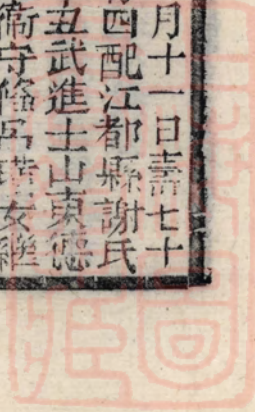 月十一日壽七十
四配江都縣謝氏
丑武進士山東德
衞守備呂女繼